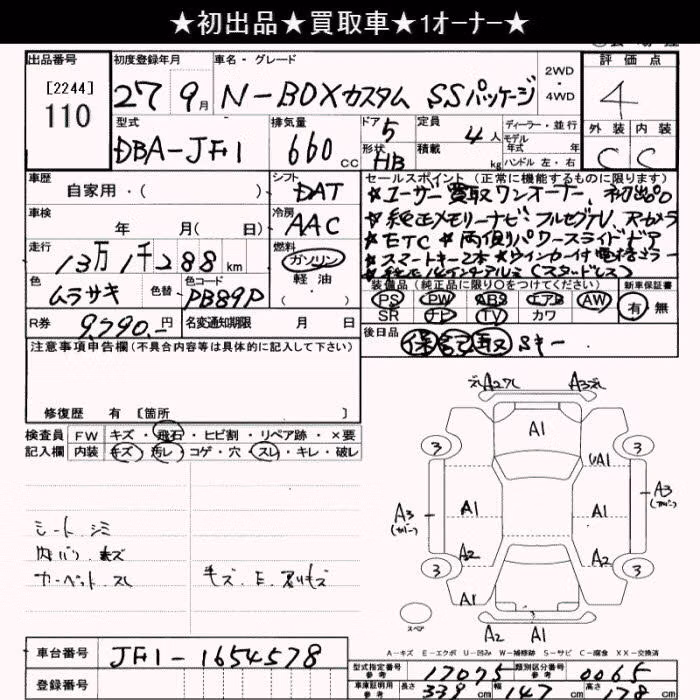 ★初出品★買取車★1オーナー★
出品番号
[2244]
110
初度登録年月
27 9月
車名・グレード
N-BOXカスタム SSパッケージ
2WD
・
4WD
評価点
4
外装 内装
C C
型式
DBA-JF1
排気量
660cc
ドア 5
形状 HB
定員 4人
積載 kg
ディーラー・並行
モデル
年式 年
ハンドル 左・右
車歴
自家用・( )
シフト
DAT
車検
年 月( 日)
冷房
AAC
走行
13万1千288km
燃料
ガソリン
軽油
色
ムラサキ
色替
色コード
PB89P
R券
9,790.-円
名変通知期限 月 日
セールスポイント(正常に機能するものに限ります)
★ユーザー買取ワンオーナー、初出品
★純正メモリーナビ フルセグTV、Rカメラ
★ETC ★両側パワースライドドア
★スマートキー2本 ★ウインカー付電格ミラー
★純正14インチアルミ(スタッドレス)
装備品(純正品に限り○をつけてください)
PS PW ABS エアB AW
SR ナビ TV カワ
新車保証書
有 無
後日品
保 記 取 Sキー
注意事項申告欄(不具合内容等は具体的に記入して下さい)
修復歴 有 [箇所 ]
検査員
記入欄
FW キズ・飛石・ヒビ割・リペア跡・×要
内装 キズ・汚レ・コゲ・穴・スレ・キレ・破レ
シート シミ
内ドバリ キズ
カーペット スレ
A2 A3
A1
3 3
UA1
A3
(カバー)
A1 A1
A3
(カバー)
A2 A2
3 3
A1 A1
スペア
A2 A1
A-キズ E-エクボ U-凹み W-補修跡 S-サビ C-腐食 XX-交換済
車台番号
JF1-1654578
登録番号
型式指定番号
参考
17075
類別区分番号
参考
0065
車庫証明用
参考
長さ 339cm
幅 147cm
高さ 178cm